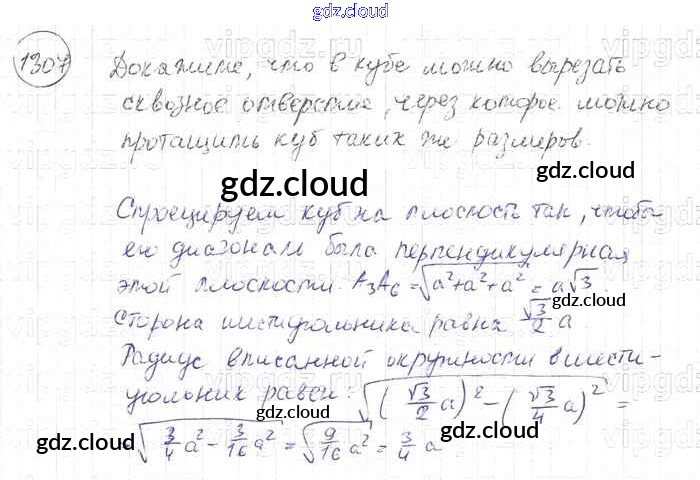 gdz.cloud
1307
Докажите, что в кубе можно вырезать
сквозное отверстие, через которое можно
протащить куб таких же размеров.
gdz.cloud gdz.cloud
Спроецируем куб на плоскость так, чтобы
его диагональ была перпендикулярная
этой плоскости. A₃A₆ = √(a²+a²+a²) = a√3.
gdz.cloud
Сторона шестиугольника равна √3/2 a.
Радиус вписанной окружности в шести-
угольник равен: √((√3/2 a)² - (√3/4 a)²) =
gdz.cloud gdz.cloud
= √(3/4 a² - 3/16 a²) = √(9/16 a²) = 3/4 a
gdz.cloud gdz.cloud